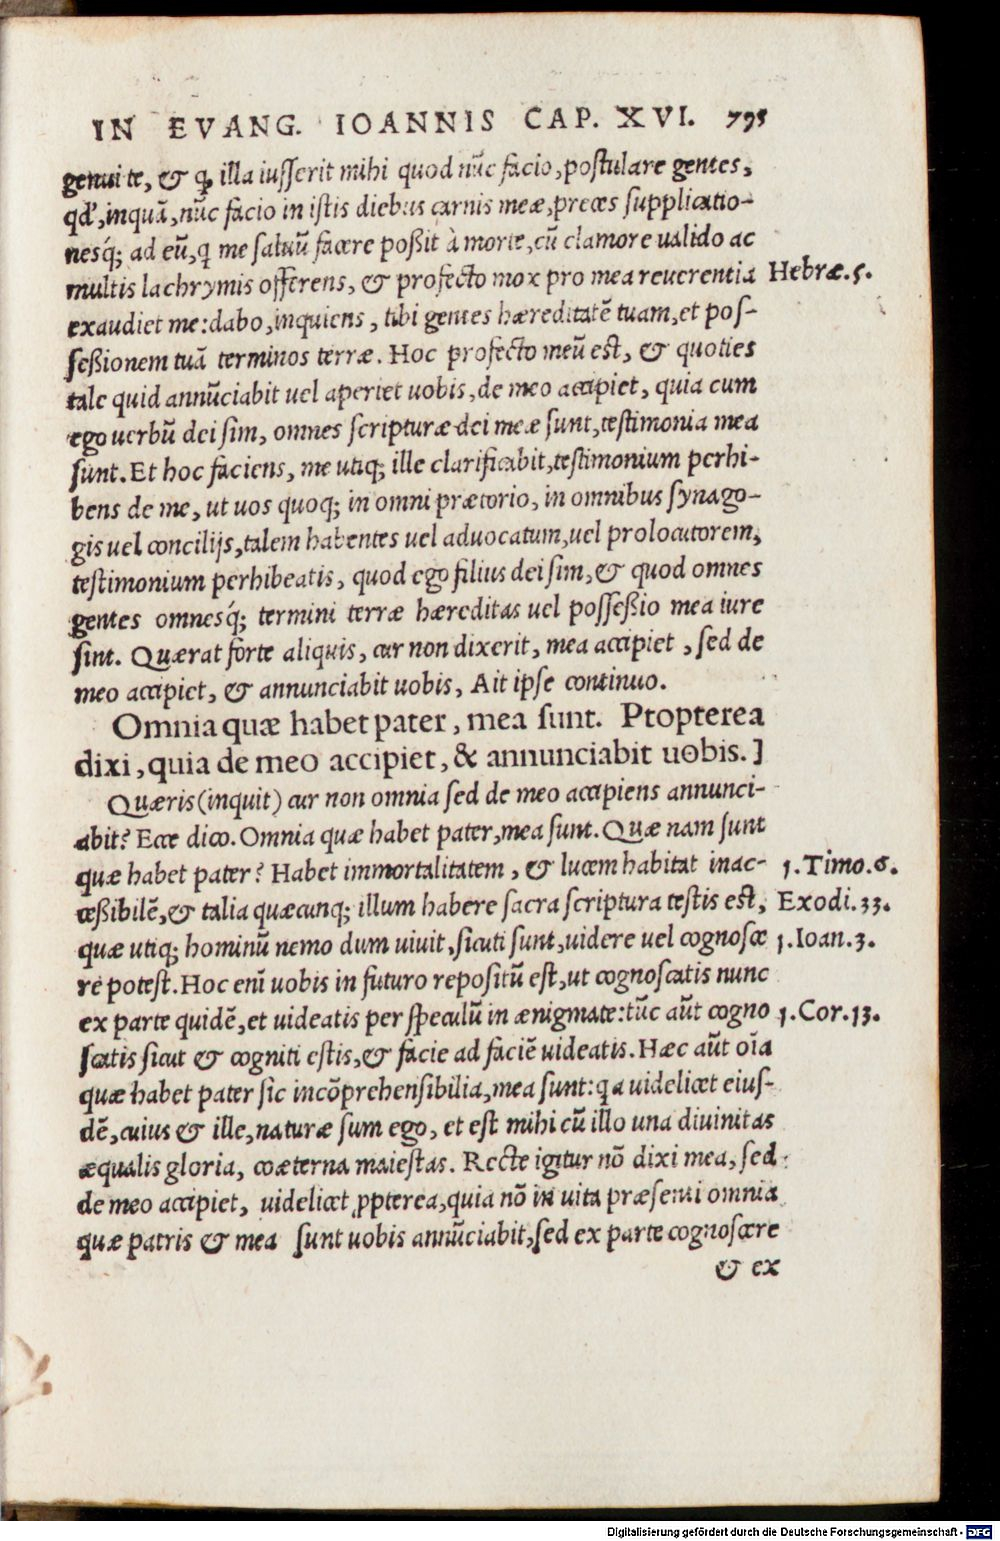 IN EVANG. IOANNIS CAP. XVI. 795
genui te, & ꝙ illa iusserit mihi quod nūc facio, postulare gentes,
qđ, inquā, nūc facio in istis diebus carnis meæ, preces supplicatio-
nesq́; ad eū, q me saluū facere poßit à morte, cū clamore ualido ac
multis lachrymis offerens, & profecto mox pro mea reuerentia Hebræ. 5.
exaudiet me: dabo, inquiens, tibi gentes hæreditatē tuam, et pos-
seßionem tuā terminos terræ. Hoc profecto meū est, & quoties
tale quid annūciabit uel aperiet uobis, de meo accipiet, quia cum
ego uerbū dei sim, omnes scripturæ dei meæ sunt, testimonia mea
sunt. Et hoc faciens, me utiq; ille clarificabit, testimonium perhi-
bens de me, ut uos quoq; in omni prætorio, in omnibus synago-
gis uel concilijs, talem habentes uel aduocatum, uel prolocutorem,
testimonium perhibeatis, quod ego filius dei sim, & quod omnes
gentes omnesq́; termini terræ hæreditas uel posseßio mea iure
sint. Quærat forte aliquis, cur non dixerit, mea accipiet, sed de
meo accipiet, & annunciabit uobis, Ait ipse continuo.
Omnia quæ habet pater, mea sunt. Ptopterea
dixi, quia de meo accipiet, & annunciabit uobis.]
Quæris (inquit) cur non omnia sed de meo accipiens annunci-
abit? Ecce dico. Omnia quæ habet pater, mea sunt. Quæ nam sunt
quæ habet pater? Habet immortalitatem, & lucem habitat inac- 1. Timo. 6.
ceßibilē, & talia quæcunq; illum habere sacra scriptura testis est, Exodi. 33.
quæ utiq; hominū nemo dum uiuit, sicuti sunt, uidere uel cognosce 1. Ioan. 3.
re potest. Hoc enī uobis in futuro repositū est, ut cognoscatis nunc
ex parte quidē, et uideatis per speculū in ænigmate: tūc aūt cogno 1. Cor. 13.
scatis sicut & cogniti estis, & facie ad faciē uideatis. Hæc aūt oīa
quæ habet pater sic incōprehensibilia, mea sunt: q a uidelicet eius-
dē, cuius & ille, naturæ sum ego, et est mihi cū illo una diuinitas
æqualis gloria, coæterna maiestas. Recte igitur nō dixi mea, sed
de meo accipiet, uidelicet ꝓpterea, quia nō in uita præsenti omnia
quæ patris & mea sunt uobis annūciabit, sed ex parte cognoscere
& ex
Digitalisierung gefördert durch die Deutsche Forschungsgemeinschaft - DFG